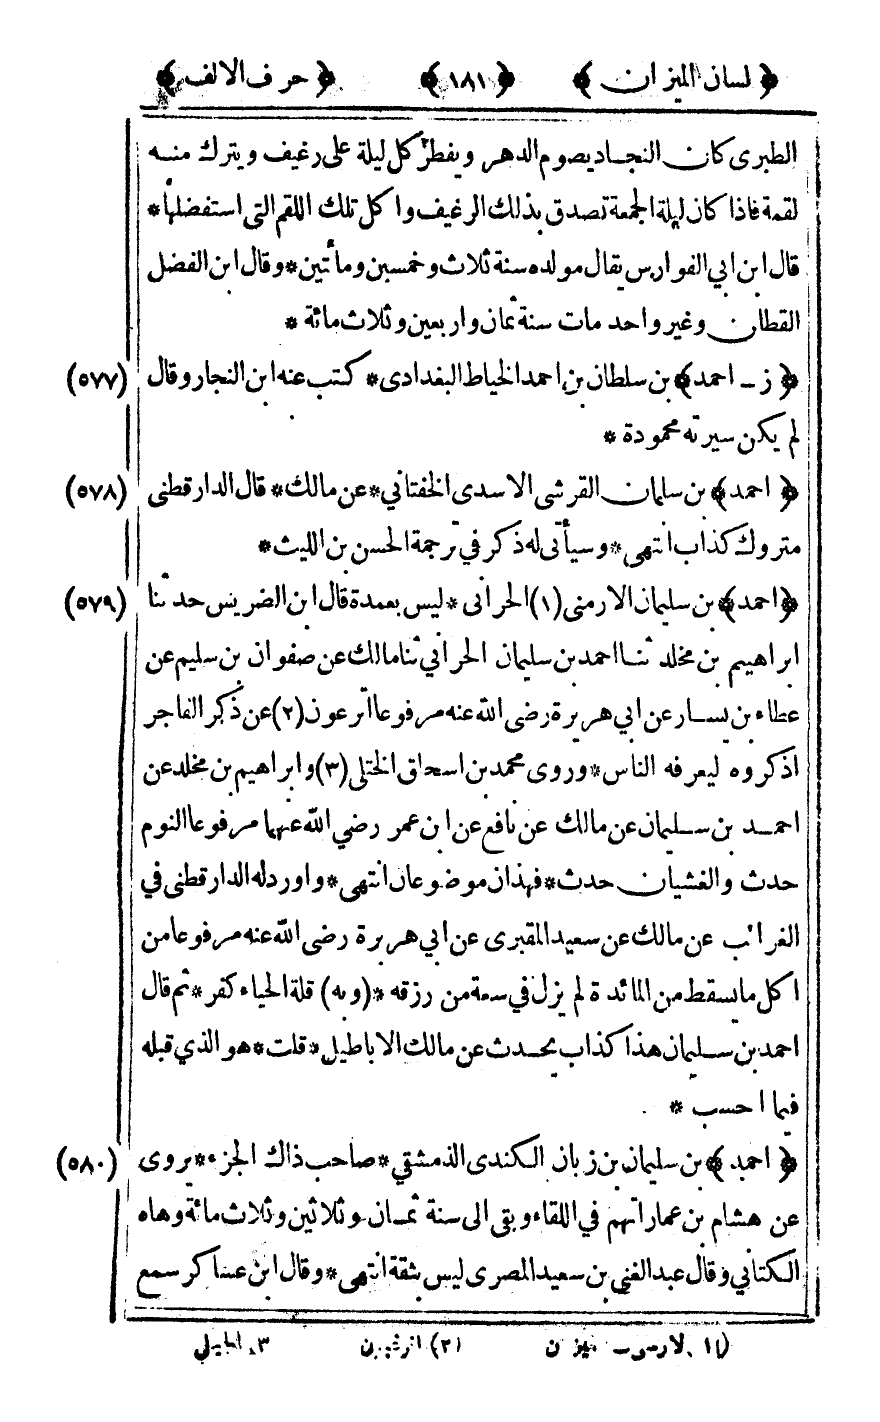 ﴿ لسان الميزان ﴾ ﴿ ١٨١ ﴾ ﴿ حرف الالف ﴾
الطبرى كان النجاد يصوم الدهر و يفطر كل ليلة على رغيف و يترك منه
لقمة فاذا كان ليلة الجمعة تصدق بذلك الرغيف و اكل تلك اللقم التى استفضلها *
قال ابن ابي الفوارس يقال مولده سنة ثلاث و خمسين و مأتين * و قال ابن الفضل
القطان و غير واحد مات سنة ثمان و اربعين و ثلاث مائة *
﴿ ز ـ احمد ﴾ بن سلطان بن احمد الخياط البغدادى * كتب عنه ابن النجار و قال (٥٧٧)
لم يكن سيرته محمودة *
﴿ احمد ﴾ بن سليمان القرشى الاسدى الخفتاني * عن مالك * قال الدارقطنى (٥٧٨)
متروك كذاب انتهى * و سيأتى له ذكر في ترجمة الحسن بن الليث *
﴿ احمد ﴾ بن سليمان الارمنى (١) الحرانى * ليس بعمدة قال ابن الضريس حدثنا (٥٧٩)
ابراهيم بن مخلد ثنا احمد بن سليمان الحراني ثنا مالك عن صفوان بن سليم عن
عطاء بن يسار عن ابي هريرة رضى الله عنه مرفوعا اترعون (٢) عن ذكر الفاجر
اذكروه ليعرفه الناس * و روى محمد بن اسحاق الختلى (٣) و ابراهيم بن مخلد عن
احمد بن سليمان عن مالك عن نافع عن ابن عمر رضي الله عنهما مرفوعا النوم
حدث والغشيان حدث * فهذان موضوعان انتهى * و اورد له الدارقطنى في
الغرائب عن مالك عن سعيد المقبرى عن ابي هريرة رضى الله عنه مرفوعا من
اكل ما يسقط من المائدة لم يزل في سعة من رزقه * (وبه) قلة الحياء كفر * ثم قال
احمد بن سليمان هذا كذاب يحدث عن مالك الاباطيل * قلت * هو الذي قبله
فيما احسب *
﴿ احمد ﴾ بن سليمان بن زبان الكندى الدمشقي * صاحب ذاك الجزء * يروى (٥٨٠)
عن هشام بن عمار اتهم في اللقاء و بقى الى سنة ثمان و ثلاثين و ثلاث مائة وهاه
الكتاني و قال عبد الغني بن سعيد المصرى ليس بثقة انتهى * و قال ابن عساكر سمع
(٢) ٣